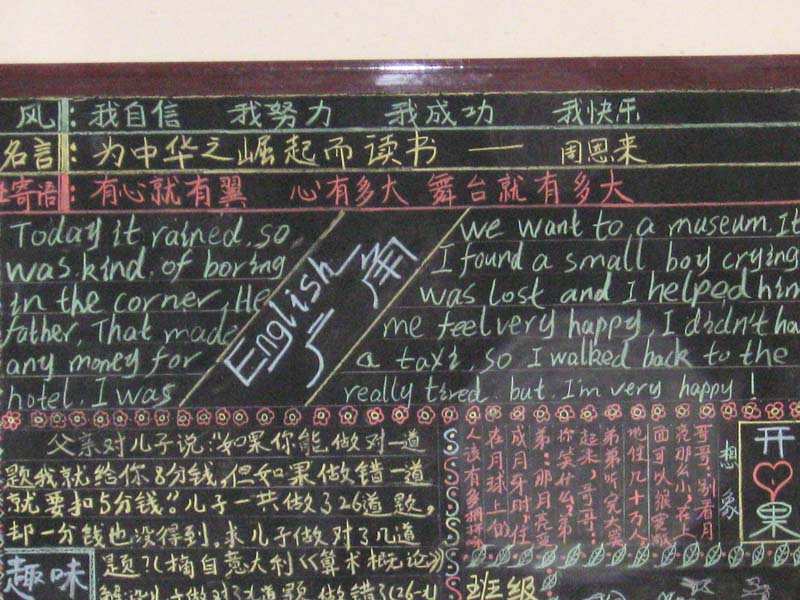 风：我自信 我努力 我成功 我快乐
名言：为中华之崛起而读书 — 周恩来
寄语：有心就有翼 心有多大 舞台就有多大
Today it rained, so we want to a museum. It
was kind of boring I found a small boy crying
in the corner, He was lost and I helped him
father, That made me feel very happy, I didn't ha
any money for a taxi, so I walked back to the
hotel. I was really tired but I'm very happy!
English
广角
父亲对儿子说："如果你能做对一道
题我就给你8分钱,但如果做错一道
就要扣5分钱."儿子一共做了26道题,
却一分钱也没得到.求儿子做对了几道
题?(摘自意大利《算术概论》)
趣味
开心果
想象
哥哥：别看月
亮那么小，在
面可以
地住几十万人
弟弟听完大笑
起来，哥哥：
你笑什么？弟
弟：那月亮变
成月牙时，住
在月球上的
人该有多拥挤
班级